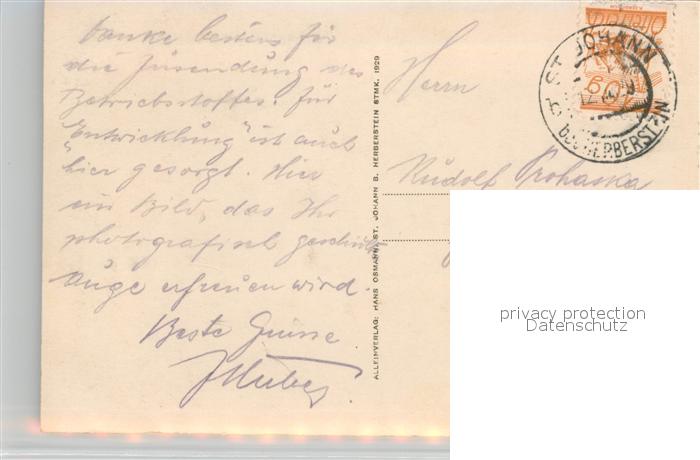 Danke bestens für
die Zusendung des
Betriebsstoffes. für
"Entwicklung" ist auch
hier gesorgt. Hier
ein Bild, das Ihr
photografisch geschultes
Auge erfreuen wird.
Beste Grüsse
JHuber
ALLEINVERLAG: HANS OSMANN, ST. JOHANN B. HERBERSTEIN STMK. 1929
Herrn
Rudolf Prohaska
ST. JOHANN
B. HERBERSTEIN
privacy protection
Datenschutz